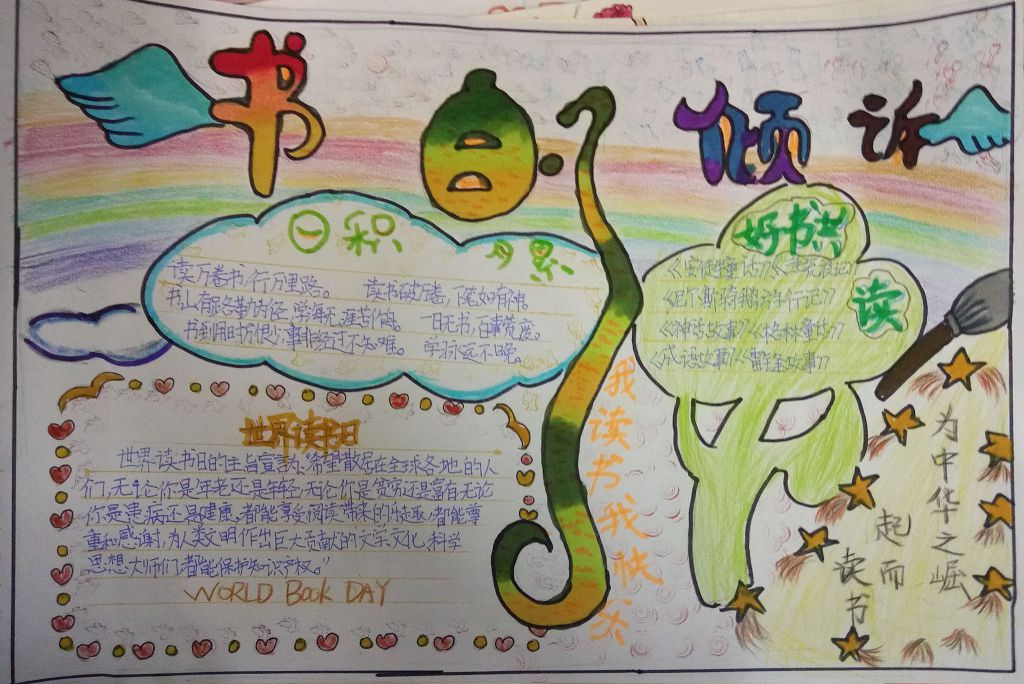 书 倾诉
日积月累
读万卷书,行万里路。 读书破万卷,下笔如有神。
书山有路勤为径,学海无涯苦作舟。 一日无书,百事荒废。
书到用时方恨少,事非经过不知难。 学永远不晚。
好书共读
《安徒生童话》
《尼尔斯骑鹅旅行记》
《神话故事》《格林童话》
《成语故事》《雷锋故事》
世界读书日
世界读书日的主旨宣言:"希望散居在全球各地的人
们,无论你是年老还是年轻,无论你是贫穷还是富有,无论
你是患病还是健康,都能享受阅读带来的乐趣,都能尊
重和感谢,为人类文明作出巨大贡献的文学、文化、科学
思想大师们,都能保护知识产权。"
WORLD Book DAY
我读书我快乐
为中华之崛
起而
读书